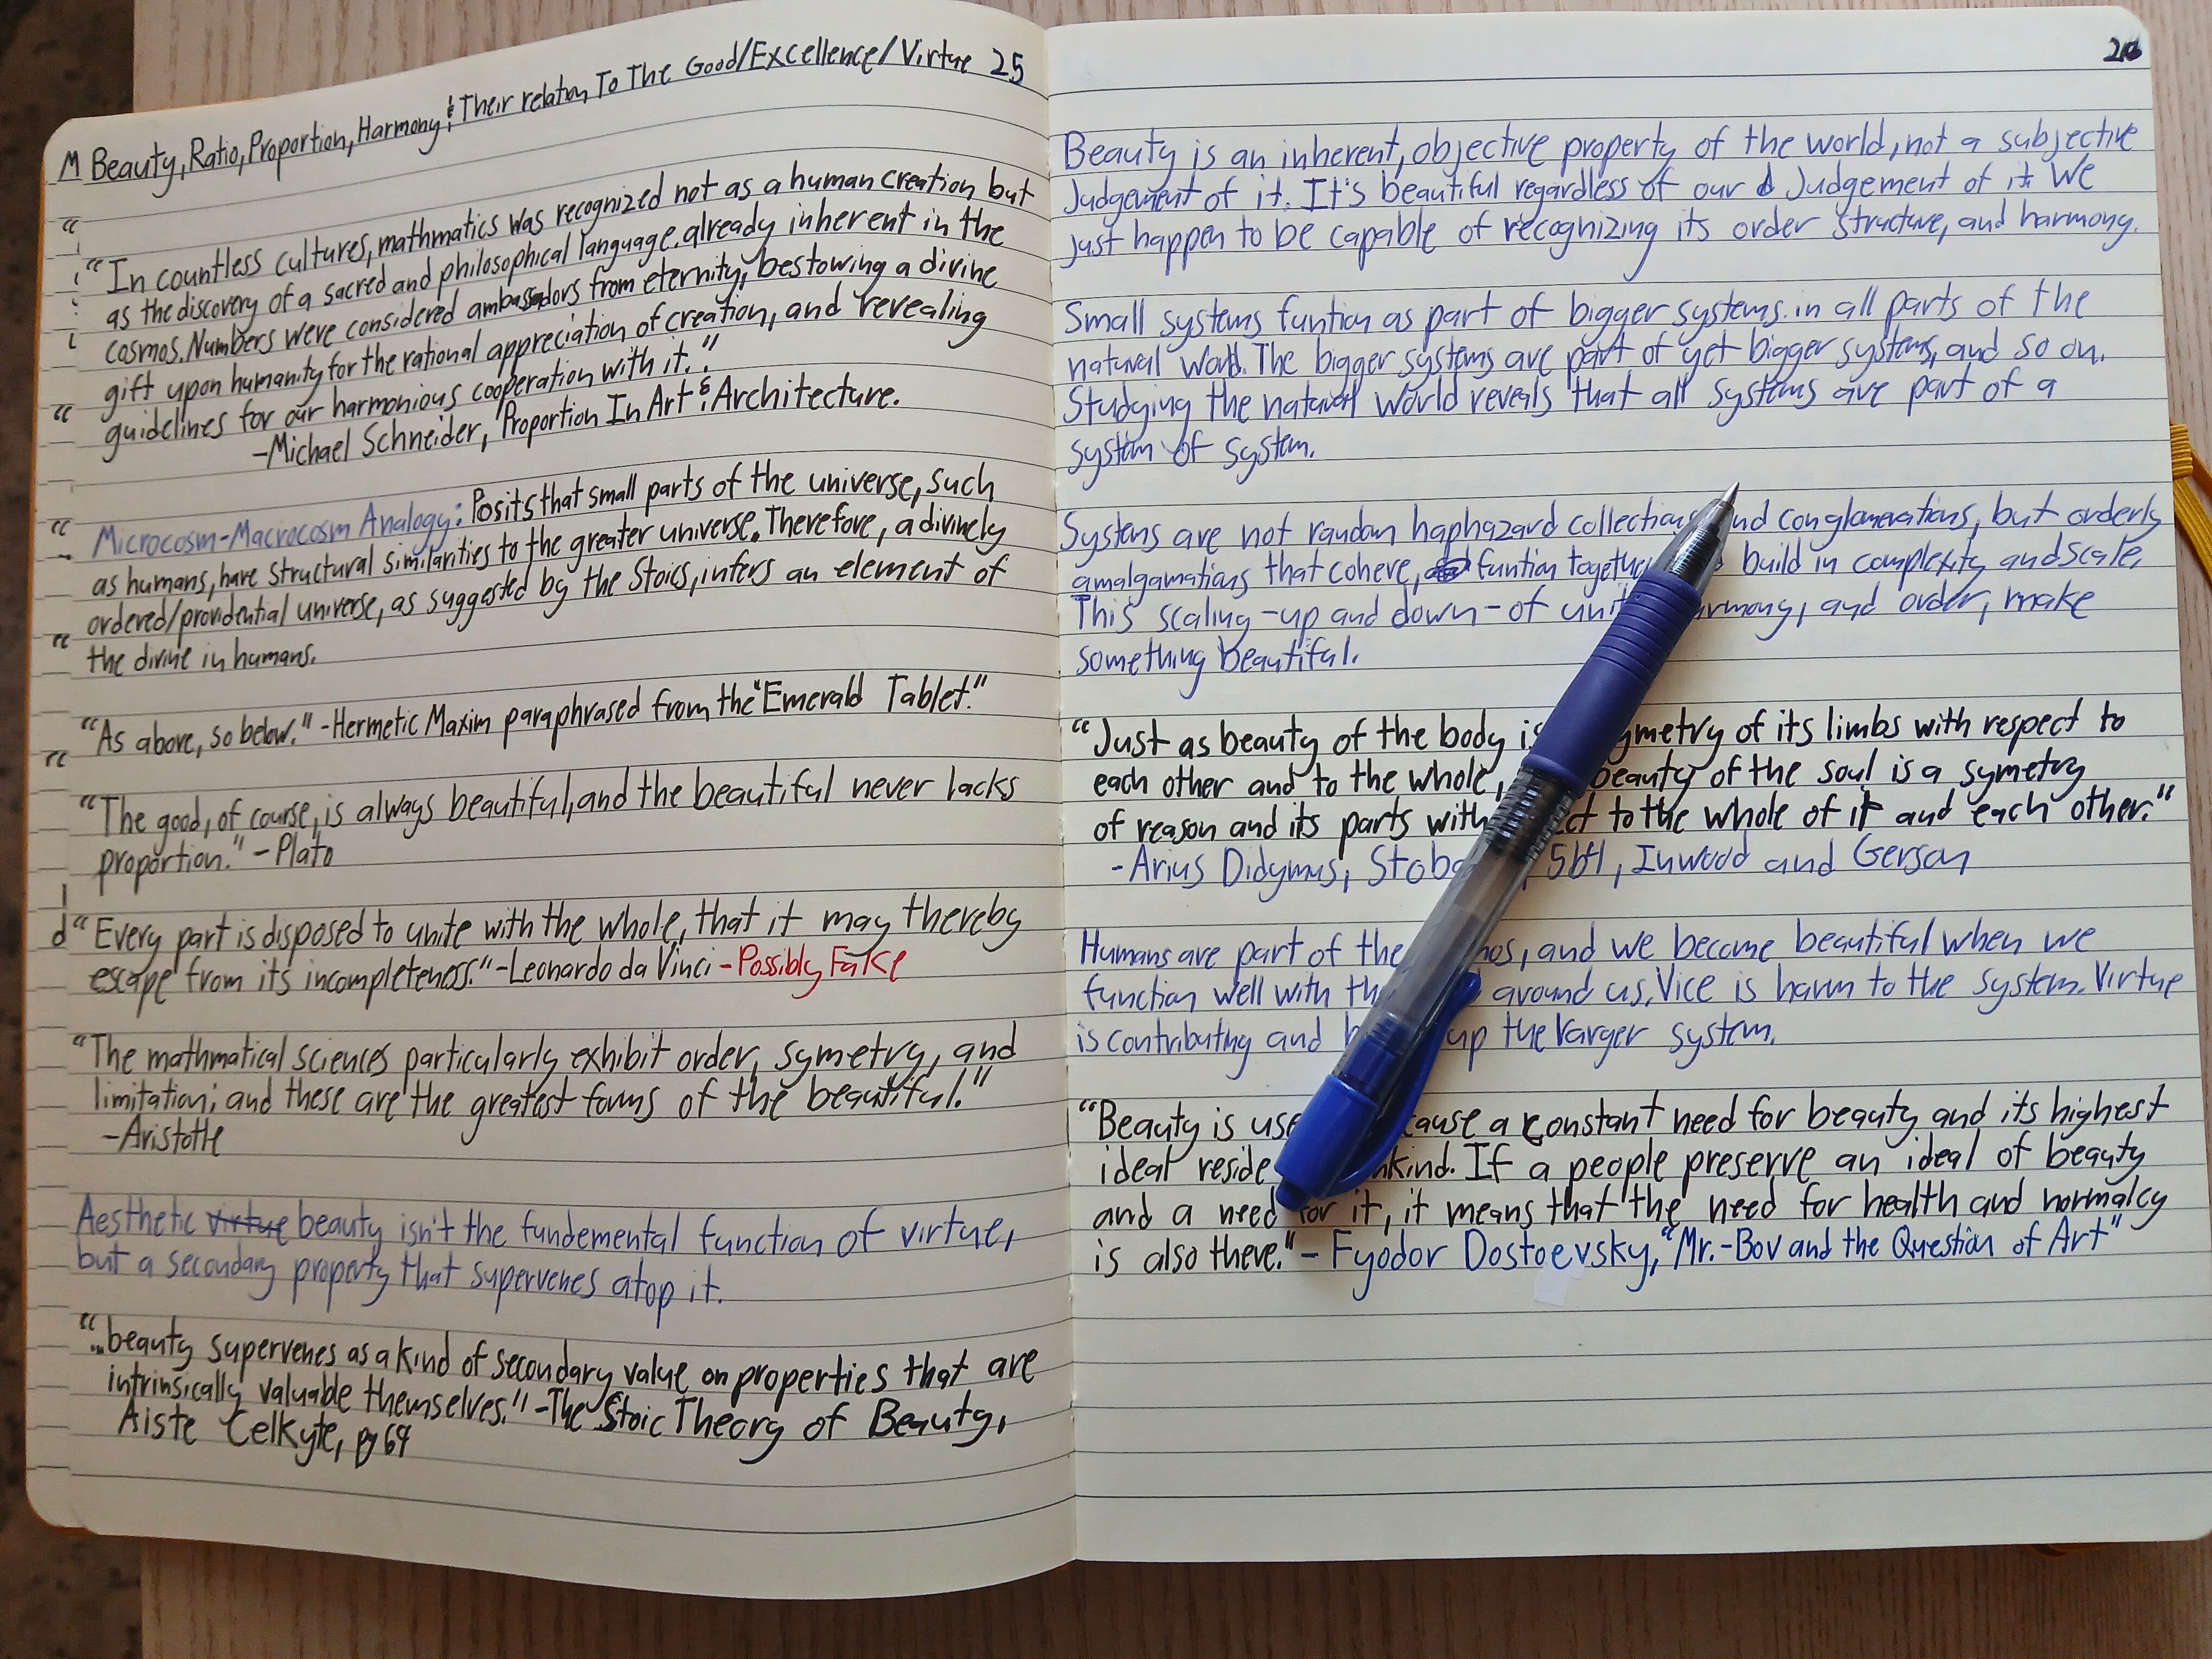 M Beauty, Ratio, Proportion, Harmony, & Their relation To The Good/Excellence/Virtue 25
"In countless cultures, mathmatics was recognized not as a human creation, but
as the discovery of a sacred and philosophical language, already inherent in the
cosmos. Numbers were considered ambassadors from eternity, bestowing a divine
gift upon humanity for the rational appreciation of creation, and revealing
guidelines for our harmonious cooperation with it."
-Michael Schneider, Proportion In Art & Architecture.
Microcosm-Macrocosm Analogy: Posits that small parts of the universe, such
as humans, have structural similarities to the greater universe. Therefore, a divinely
ordered/providential universe, as suggested by the Stoics, infers an element of
the divine in humans.
"As above, so below." -Hermetic Maxim paraphrased from the "Emerald Tablet."
"The good, of course, is always beautiful, and the beautiful never lacks
proportion." -Plato
d "Every part is disposed to unite with the whole, that it may thereby
escape from its incompleteness." -Leonardo da Vinci -Possibly Fake
"The mathmatical sciences particularly exhibit order, symetry, and
limitation; and these are the greatest forms of the beautiful."
-Aristotle
Aesthetic virtue beauty isn't the fundemental function of virtue,
but a secondary property that supervenes atop it.
"...beauty supervenes as a kind of secondary value on properties that are
intrinsically valuable themselves." -The Stoic Theory of Beauty,
Aiste Celkyte, pg 64
26
Beauty is an inherent, objective property of the world, not a subjective
Judgement of it. It's beautiful regardless of our Judgement of it. We
just happen to be capable of recognizing its order structure, and harmony.
Small systems funtion as part of bigger systems in all parts of the
natural world. The bigger systems are part of yet bigger systems, and so on.
Studying the natural world reveals that all systems are part of a
system of system.
Systems are not random haphazard collections and conglomerations, but orderly
amalgamations that cohere, funtion together build in complexity and scale.
This scaling -up and down- of harmony, and order, make
something beautiful.
"Just as beauty of the body is symetry of its limbs with respect to
each other and to the whole, beauty of the soul is a symetry
of reason and its parts with to the whole of it and each other."
-Arius Didymus, 5b4l, Inwood and Gerson
Humans are part of the and we become beautiful when we
function well with around us. Vice is harm to the system. Virtue
is contributing and up the larger system.
"Beauty is a constant need for beauty and its highest
ideal If a people preserve an ideal of beauty
and a need for it, it means that the need for health and normalcy
is also there." - Fyodor Dostoevsky, "Mr.-Bov and the Question of Art"